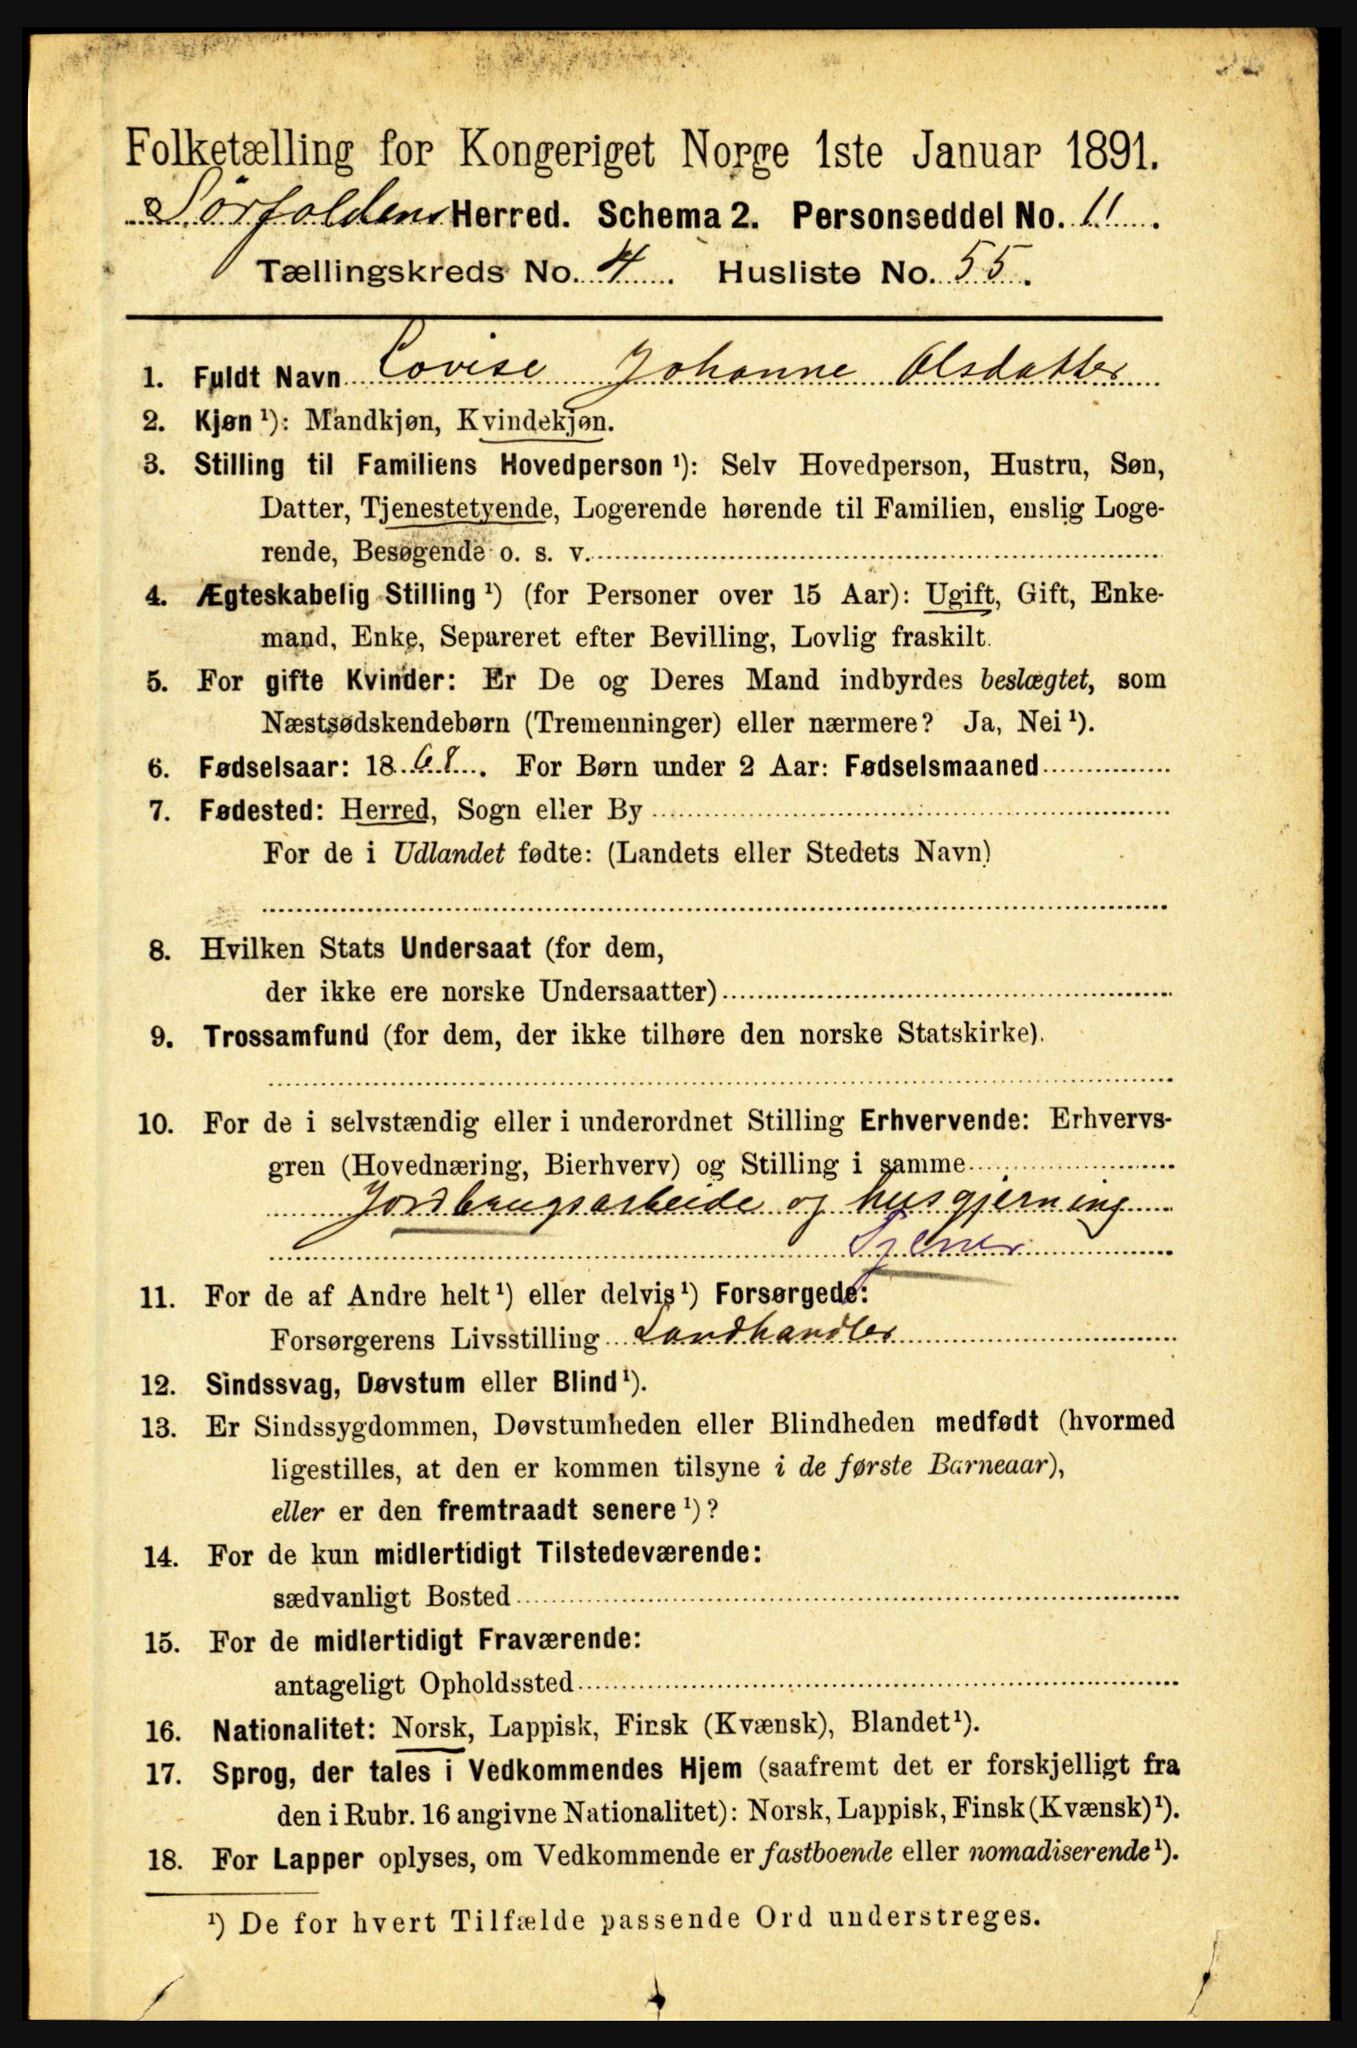 Folketælling for Kongeriget Norge 1ste Januar 1891.
Sörfoldens Herred. Schema 2. Personseddel No. 11.
Tællingskreds No. 4. Husliste No. 55.
1. Fuldt Navn Lovise Johanne Olsdatter
2. Kjøn ¹): Mandkjøn, Kvindekjøn.
3. Stilling til Familiens Hovedperson ¹): Selv Hovedperson, Hustru, Søn,
Datter, Tjenestetyende, Logerende hørende til Familien, enslig Loge-
rende, Besøgende o. s. v.
4. Ægteskabelig Stilling ¹) (for Personer over 15 Aar): Ugift, Gift, Enke-
mand, Enke, Separeret efter Bevilling, Lovlig fraskilt.
5. For gifte Kvinder: Er De og Deres Mand indbyrdes beslægtet, som
Næstsødskendebørn (Tremenninger) eller nærmere? Ja, Nei ¹).
6. Fødselsaar: 1868. For Børn under 2 Aar: Fødselsmaaned
7. Fødested: Herred, Sogn eller By
For de i Udlandet fødte: (Landets eller Stedets Navn)
8. Hvilken Stats Undersaat (for dem,
der ikke ere norske Undersaatter)
9. Trossamfund (for dem, der ikke tilhøre den norske Statskirke).
10. For de i selvstændig eller i underordnet Stilling Erhvervende: Erhvervs-
gren (Hovednæring, Bierhverv) og Stilling i samme
Jordbrugsarbeide og husgjerning
Tjener
11. For de af Andre helt ¹) eller delvis ¹) Forsørgede:
Forsørgerens Livsstilling Landhandler
12. Sindssvag, Døvstum eller Blind ¹).
13. Er Sindssygdommen, Døvstumheden eller Blindheden medfødt (hvormed
ligestilles, at den er kommen tilsyne i de første Barneaar),
eller er den fremtraadt senere ¹)?
14. For de kun midlertidigt Tilstedeværende:
sædvanligt Bosted
15. For de midlertidigt Fraværende:
antageligt Opholdssted
16. Nationalitet: Norsk, Lappisk, Finsk (Kvænsk), Blandet ¹).
17. Sprog, der tales i Vedkommendes Hjem (saafremt det er forskjelligt fra
den i Rubr. 16 angivne Nationalitet): Norsk, Lappisk, Finsk (Kvænsk) ¹).
18. For Lapper oplyses, om Vedkommende er fastboende eller nomadiserende ¹).
¹) De for hvert Tilfælde passende Ord understreges.